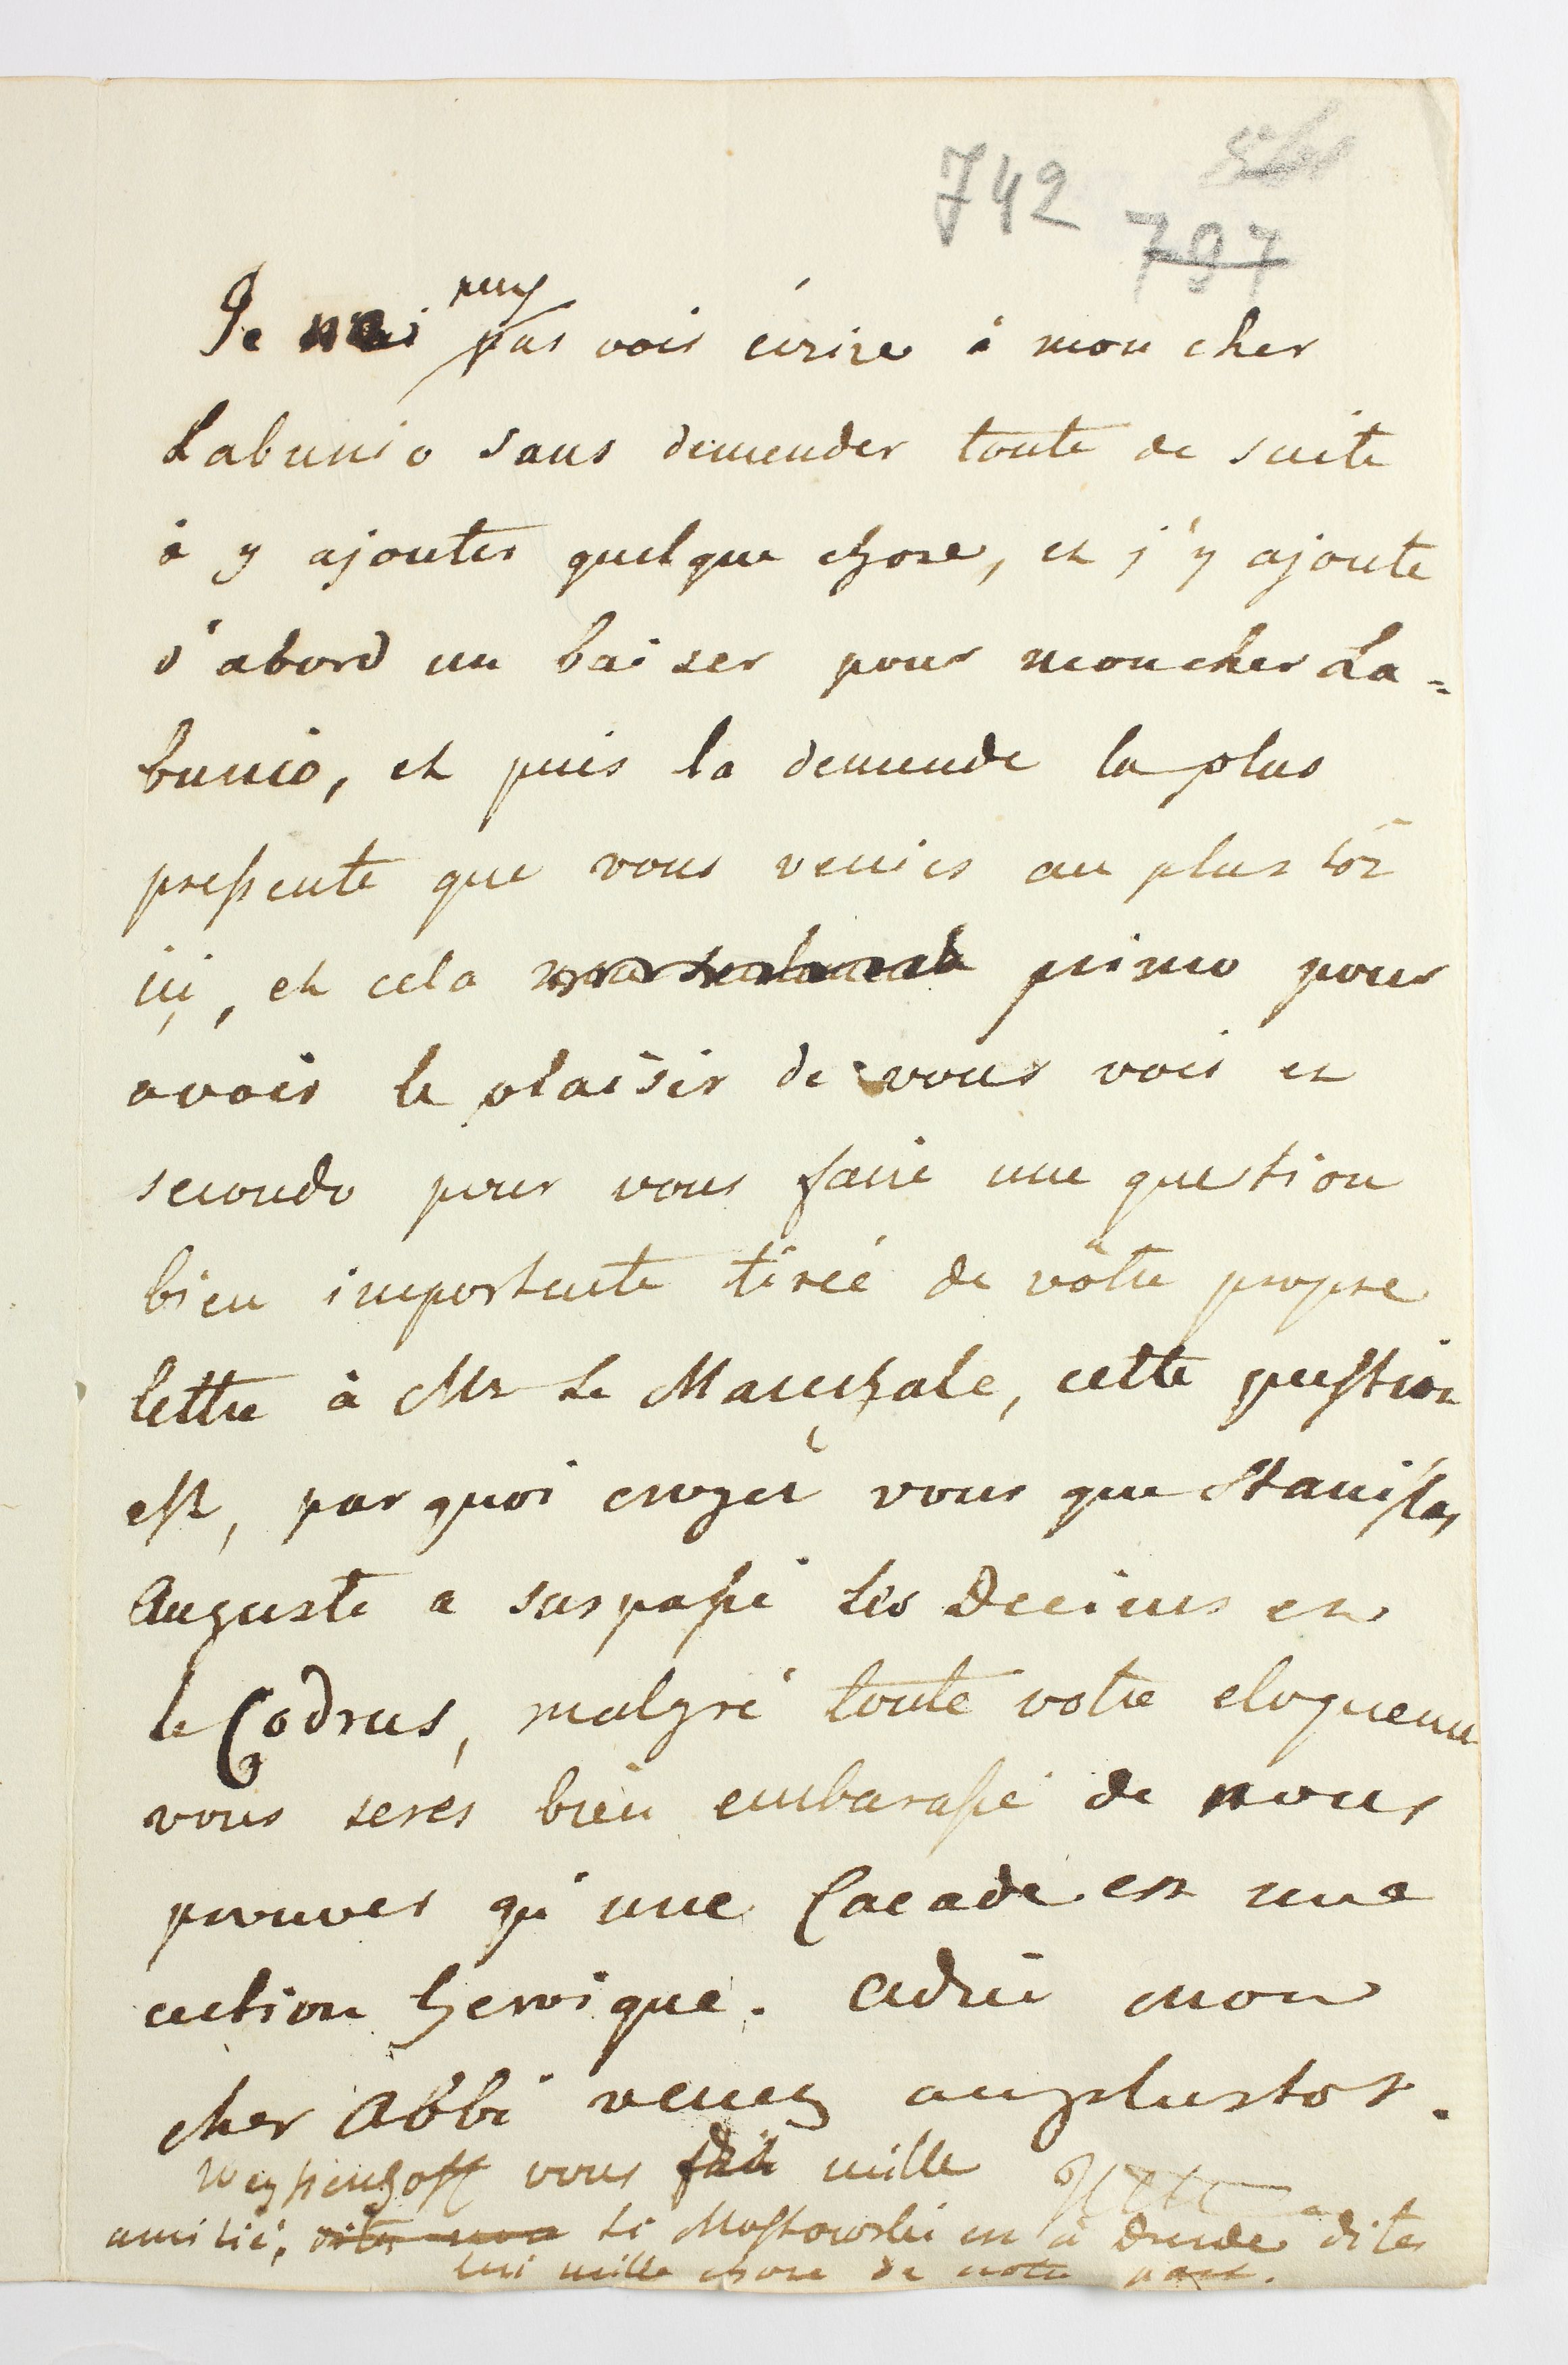 742
797
puis
Je pas voir écrire à mon cher
Labunio sans demender toute de suite
à y ajouter quelque chose, et j'y ajoute
d'abord un baiser pour mon cher La=
bunio, et puis la demende la plus
pressente que vous veniés au plus tôt
içi, et cela non seulement primo pour
avoir le plaisir de vous voir et
secondo pour vous faire une question
bien importente tirée de vôtre propre
lettre à Mr Le Marechale, cette question
est, par quoi croyez vous que Stanislas
Auguste a surpassé les Decius et
le Codrus, malgré toute votre eloquence
vous serés bien embarassé de nous
prouver qu'une Cacade est une
action heroique. Adieu mon
cher Abbé venez auplustot.
Weyssenhoff vous fait mille
amitié, dites si Mostowski est à Dresde dites
lui mille chose de notre part.